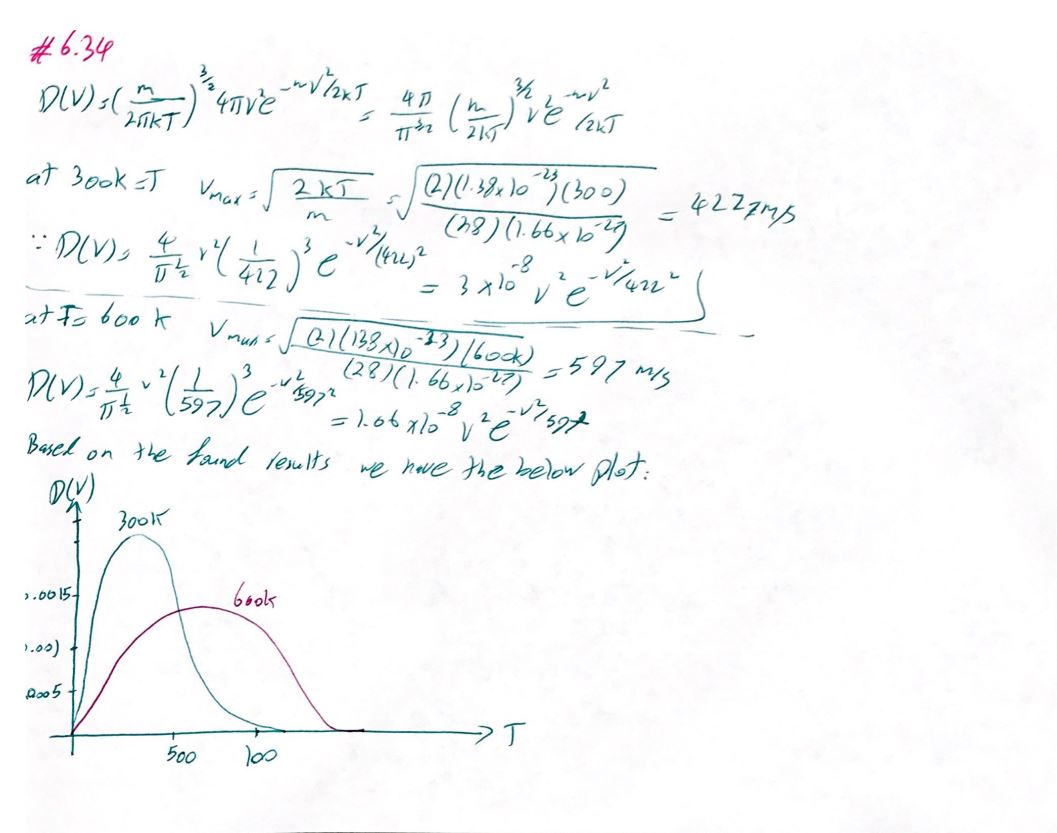 # 6.34
D(V) = (m/2πkT)^3/2 4πv²e^-mv²/2kT = 4π/π^3/2 (m/2kT)^3/2 v²e^-mv²/2kT
at 300k = T Vmax = √(2kT/m) = √((2)(1.38x10^-23)(300)/(28)(1.66x10^-27)) = 422 m/s
∵ D(V) = 4/π^½ v²(1/422)³ e^-v²/(422)² = 3 x10^-8 v² e^-v²/422²
at T = 600 k Vmax = √((2)(138x10^-23)(600k)/(28)(1.66x10^-27)) = 597 m/s
D(V) = 4/π^½ v²(1/597)³ e^-v²/597² = 1.06 x10^-8 v² e^-v²/597
Based on the found results we have the below plot:
D(V)
300k
.0015
600k
.001
.0005
T
500 100